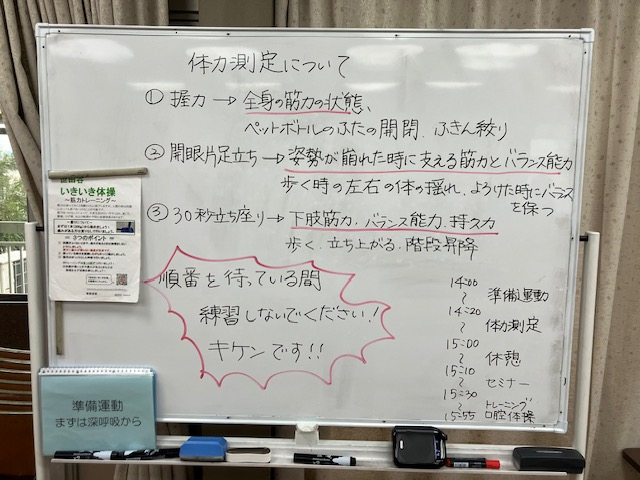 体力測定について
① 握力 → 全身の筋力の状態、
ペットボトルのふたの開閉、ふきん絞り
② 開眼片足立ち → 姿勢が崩れた時に支える筋力とバランス能力
歩く時の左右の体の揺れ、よろけた時にバランス
を保つ
③ 30秒立ち座り → 下肢筋力、バランス能力、持久力
歩く、立ち上がる、階段昇降
順番を待っている間
練習しないでください!
キケンです!!
14:00
~ 準備運動
14:20
~ 体力測定
15:00
~ 休憩
15:10
~ セミナー
15:30
~ トレーニング
15:55 口腔体操
いきいき体操
~筋力トレーニング~
3つのポイント
準備運動
まずは深呼吸から